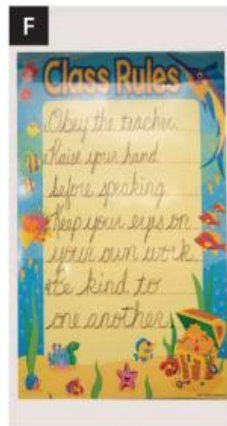 F
Class Rules
•Obey the teacher.
•Raise your hand
before speaking
•Keep your eyes on
your own work
•Be kind to
one another.